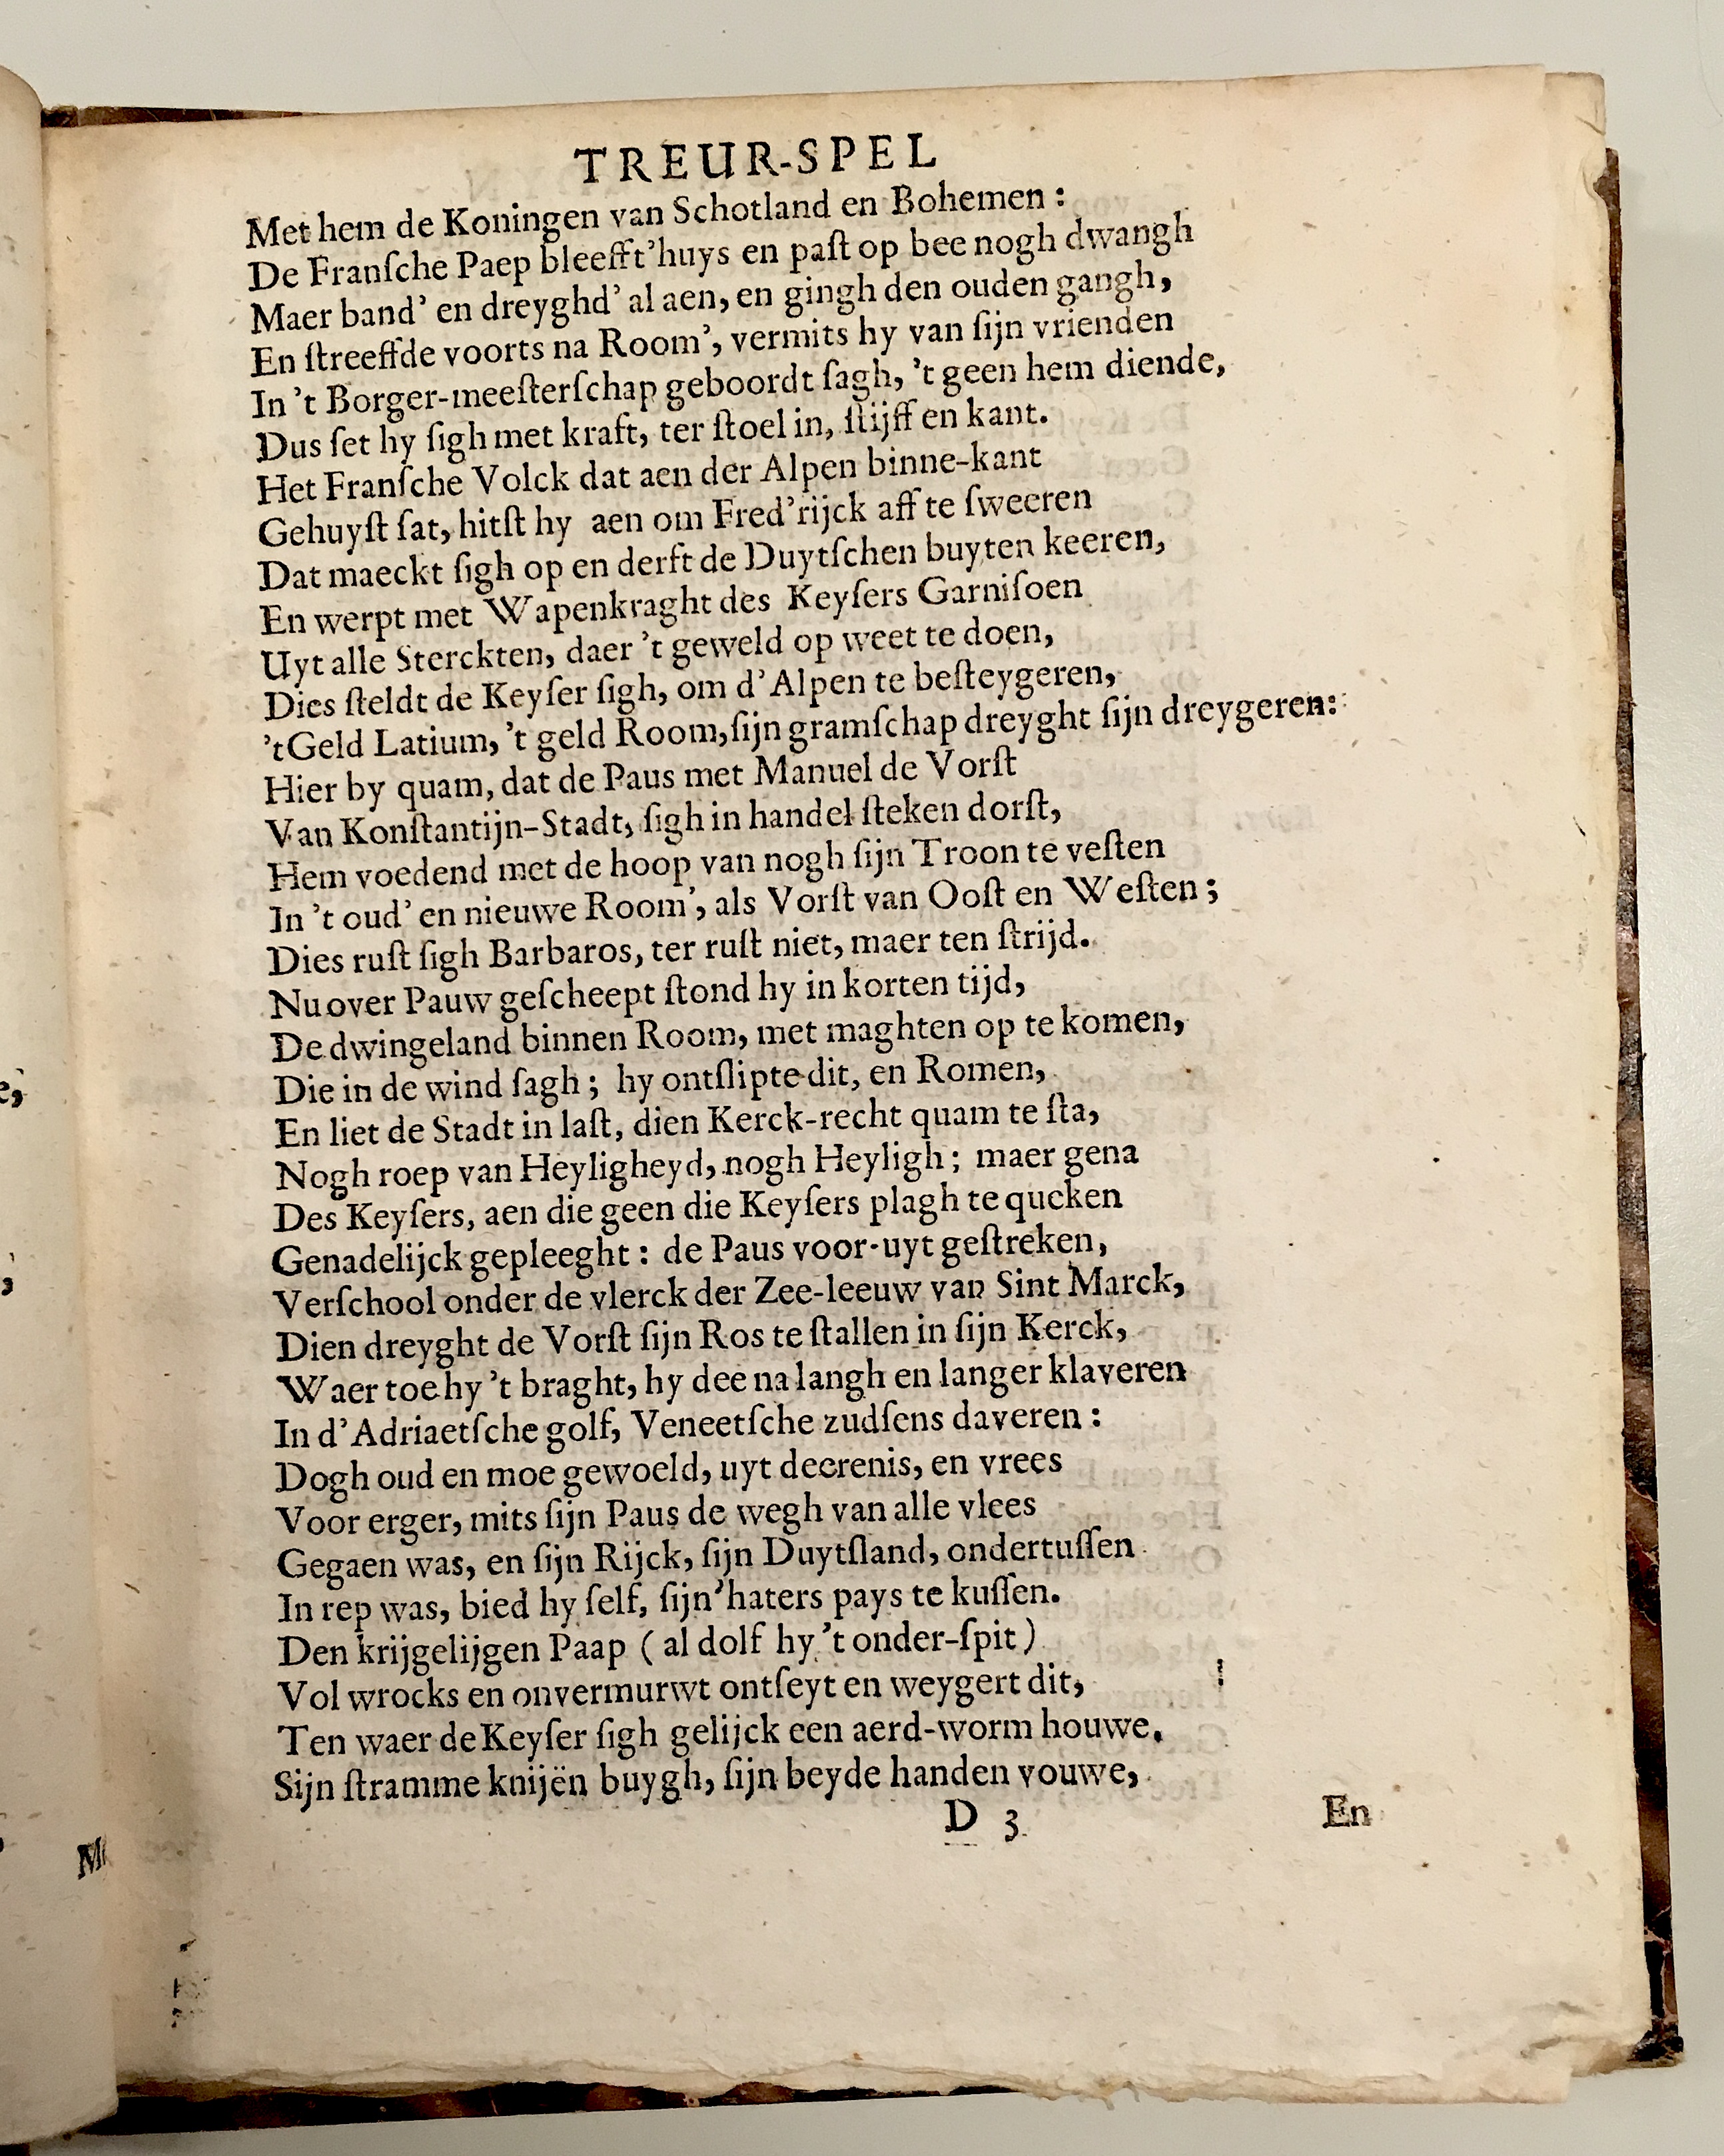 TREUR-SPEL
Met hem de Koningen van Schotland en Bohemen :
De Franſche Paep bleefft'huys en paſt op bee nogh dwangh
Maer band' en dreyghd' al aen, en gingh den ouden gangh,
En ſtreeffde voorts na Room', vermits hy van ſijn vrienden
In 't Borger-meeſterſchap geboordt ſagh, 't geen hem diende,
Dus ſet hy ſigh met kraft, ter ſtoel in, ſtijff en kant.
Het Franſche Volck dat aen der Alpen binne-kant
Gehuyſt ſat, hitſt hy aen om Fred'rijck aff te ſweeren
Dat maeckt ſigh op en derft de Duytſchen buyten keeren,
En werpt met Wapenkraght des Keyſers Garniſoen
Uyt alle Sterckten, daer 't geweld op weet te doen,
Dies ſteldt de Keyſer ſigh, om d'Alpen te beſteygeren,
'tGeld Latium, 't geld Room, ſijn gramſchap dreyght ſijn dreygeren:
Hier by quam, dat de Paus met Manuel de Vorſt
Van Konſtantijn-Stadt, ſigh in handel ſteken dorſt,
Hem voedend met de hoop van nogh ſijn Troon te veſten
In 't oud' en nieuwe Room', als Vorſt van Ooſt en Weſten ;
Dies ruſt ſigh Barbaros, ter ruſt niet, maer ten ſtrijd.
Nu over Pauw geſcheept ſtond hy in korten tijd,
De dwingeland binnen Room, met maghten op te komen,
Die in de wind ſagh ; hy ontſlipte dit, en Romen,
En liet de Stadt in laſt, dien Kerck-recht quam te ſta,
Nogh roep van Heyligheyd, nogh Heyligh ; maer gena
Des Keyſers, aen die geen die Keyſers plagh te queken
Genadelijck gepleeght : de Paus voor-uyt geſtreken,
Verſchool onder de vlerck der Zee-leeuw van Sint Marck,
Dien dreyght de Vorſt ſijn Ros te ſtallen in ſijn Kerck,
Waer toe hy 't braght, hy dee na langh en langer klaveren
In d'Adriaetſche golf, Veneetſche zudſens daveren :
Dogh oud en moe gewoeld, uyt deerenis, en vrees
Voor erger, mits ſijn Paus de wegh van alle vlees
Gegaen was, en ſijn Rijck, ſijn Duytſland, ondertuſſen
In rep was, bied hy ſelf, ſijn'haters pays te kuſſen.
Den krijgelijgen Paap ( al dolf hy 't onder-ſpit )
Vol wrocks en onvermurwt ontſeyt en weygert dit,
Ten waer de Keyſer ſigh gelijck een aerd-worm houwe,
Sijn ſtramme knijën buygh, ſijn beyde handen vouwe,
D 3
En